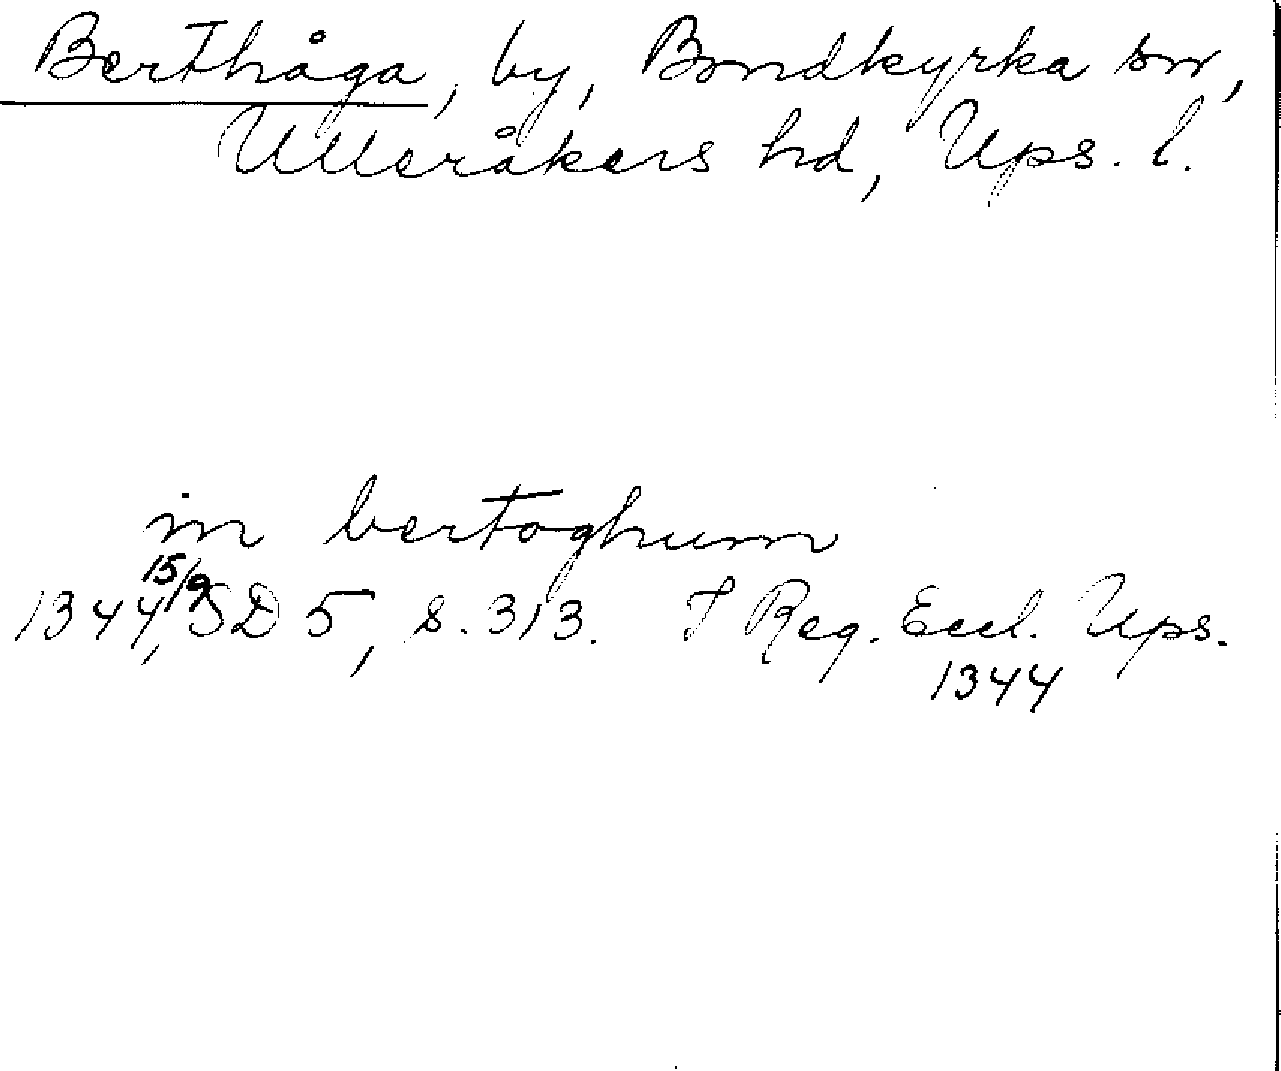 Berthåga, by, Bondkyrka sn,
Ulleråkers hd, Ups. l.
in bertoghum
1344 15/9, SD 5, s. 313. I Reg. Eccl. Ups.
1344